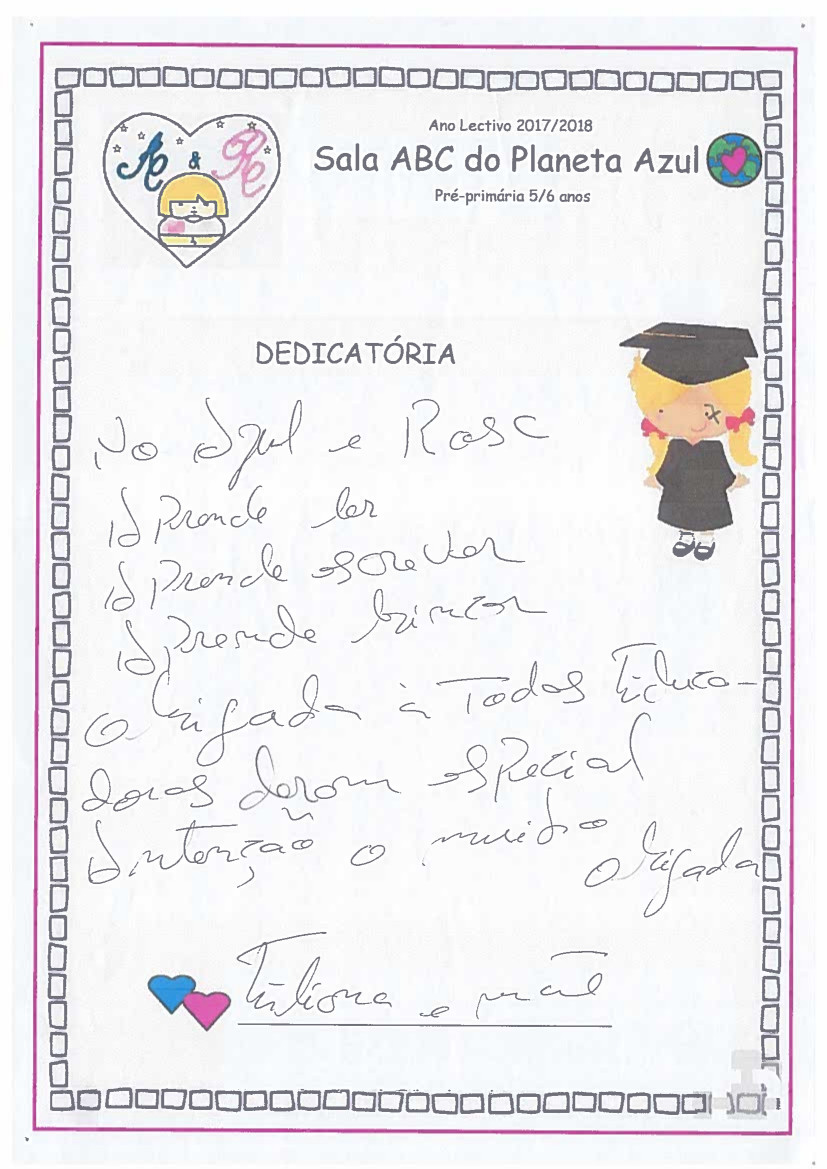 A & R
Ano Lectivo 2017/2018
Sala ABC do Planeta Azul
Pré-primária 5/6 anos
DEDICATÓRIA
No Azul e Rosa
Aprende ler
Aprende escrever
Aprende brincar
Obrigada à Todas Educa-
doras deram especial
Antenção o muito
obrigada
e mãe